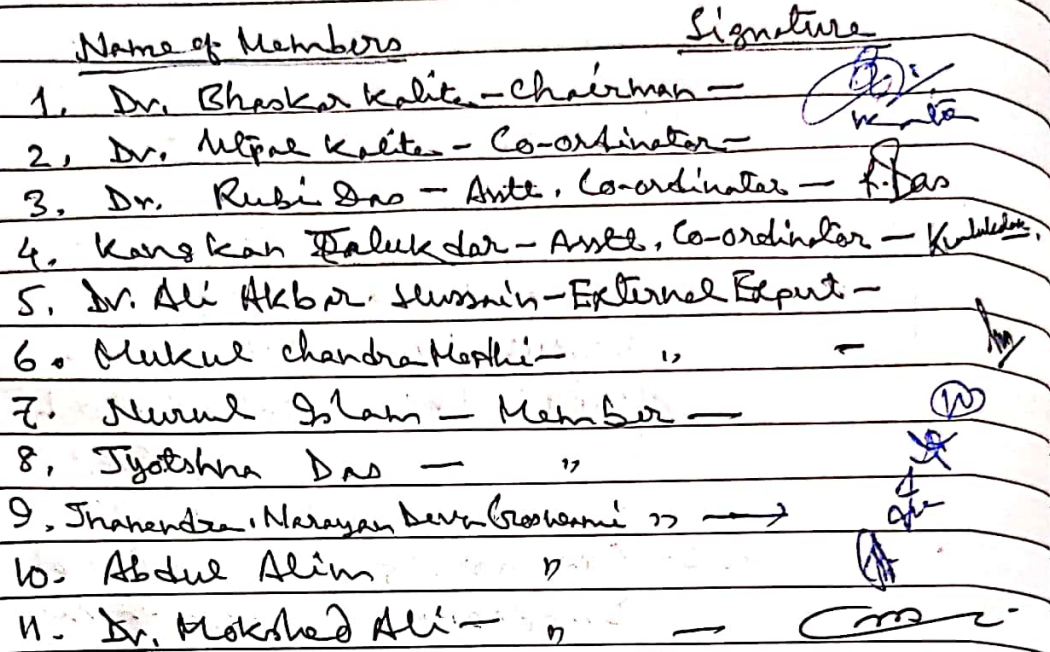 Name of Members Signature
1. Dr. Bhaskar Kalita - Chairman -
2. Dr. Utpal Kalita - Co-ordinator -
3. Dr. Rubi Das - Astt. Co-ordinator - R. Das
4. Kangkan Talukdar - Asstt. Co-ordinator -
5. Dr. Ali Akbar Hussain - External Expert -
6. Mukul Chandra - " -
7. Nurul Islam - Member -
8. Jyotshna Das - "
9. Jnanendra Narayan Deva Goswami " →
10. Abdul Alim "
11. Dr. Mokshed Ali - " -